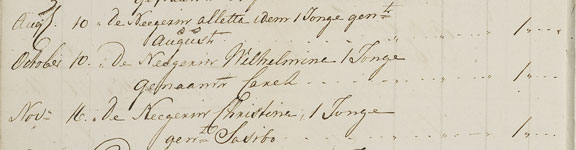 Augs. 10 „ de Neegerin alletta idem 1 Jonge gent
August „ 1 „
October 10. „ De Neegerin Wilhelmina 1 Jonge
genaamt Carel „ 1 „
Nov: 16 „ De Neegerin Christina, 1 Jonge
gent „ 1 „